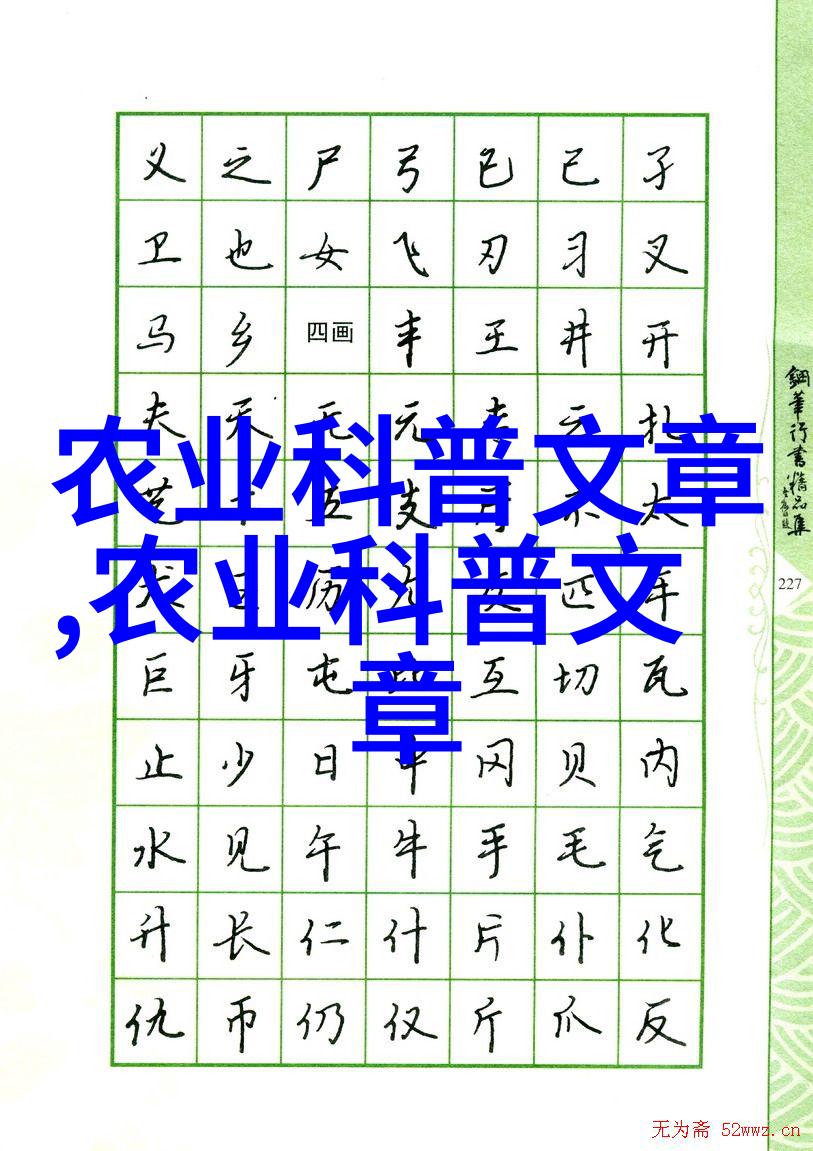 义 之 尸 弓 己 已 子
卫 也 女 飞 刃 习 叉
马 乡 四画 丰 王 井 开
夫 天 无 元 专 云 扎
农业科普文章
艺 支 不 太
,农业科普文
历 匹 车
章
巨 牙 屯 互 切 瓦
止 少 日 中 冈 贝 内
水 见 午 牛 手 毛 气
升 长 仁 什 片 仆 化
仇 币 仍 仅 斤 爪 反
钢笔行书精品集
227
无为斋 52wwz.cn